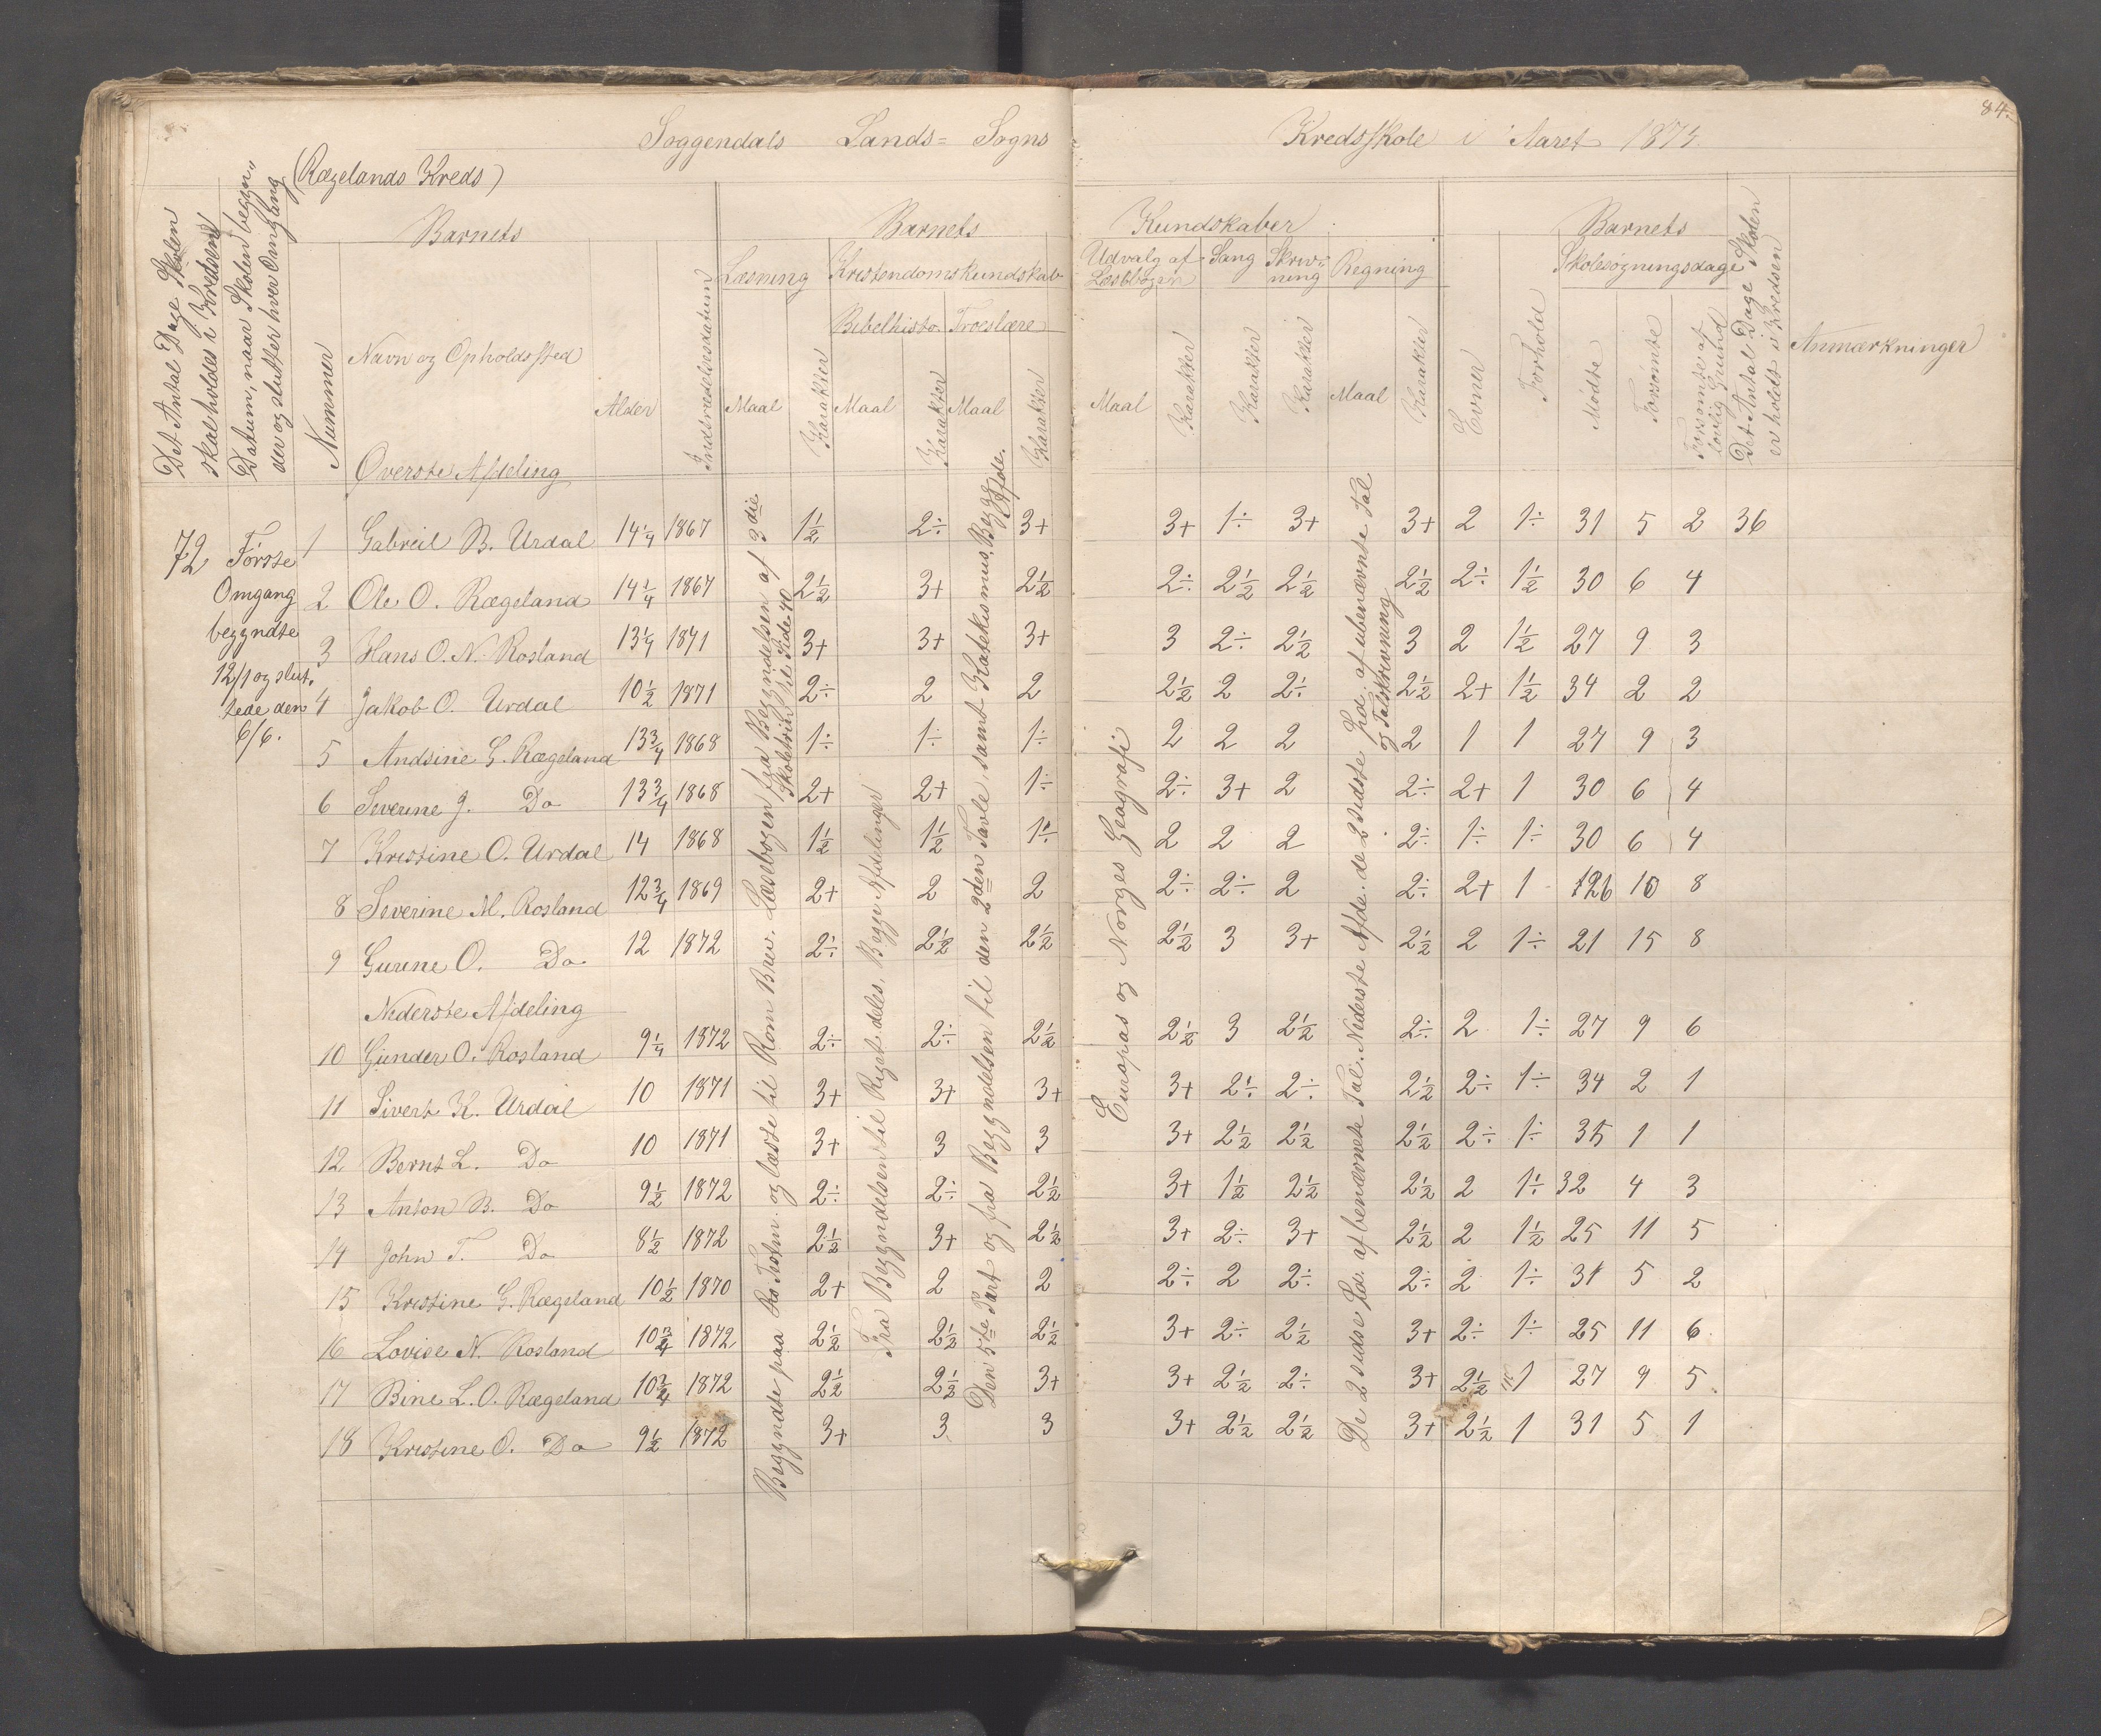 84.
Soggendals Lands= Sogns Kredsskole i Aaret 1875.
(Rægelands Kreds)
Det Antal Dage Skolen skal holdes i Kredsen
Datum, naar Skolen begyn„ der og slutter hver Omgang
Nummer
Barnets
Navn og Opholdssted
Alder
Indtrædelsesdatum
Barnets Kundskaber
Læsning
Kristendomskundskab
Bibelhisto.
Troeslære
Udvalg af Læsebogen
Sang
Skriv= ning
Regning
Maal Karakter Maal Karakter Maal Karakter
Maal Karakter Karakter Karakter Maal Karakter
Barnets
Evner
Forhold
Skolesøgningsdage
Mødte
Forsømte
Forsømte af lovlig Grund
Det Antal Dage Skolen er holdt i Kredsen
Anmærkninger
Øverste Afdeling
72 Første Omgang begyndte 12/1 og slut. tede den 6/6.
1 Gabreil B. Urdal 14¼ 1867 1½ 2÷ 3+ 3+ 1÷ 3+ 3+ 2 1÷ 31 5 2 36
2 Ole O. Rægeland 14¼ 1867 2½ 3+ 2½ 2÷ 2½ 2½ 2½ 2÷ 1½ 30 6 4
3 Hans O. N. Rosland 13¼ 1871 3+ 3+ 3+ 3 2÷ 2½ 3 2 1½ 27 9 3
4 Jakob O. Urdal 10½ 1871 2÷ 2 2 2½ 2 2÷ 2½ 2+ 1½ 34 2 2
5 Andsine G. Rægeland 13¾ 1868 1÷ 1÷ 1÷ 2 2 2 2 1 1 27 9 3
6 Severine J. Do 13¾ 1868 2+ 2+ 1÷ 2÷ 3+ 2 2÷ 2+ 1 30 6 4
7 Kristine O. Urdal 14 1868 1½ 1½ 1÷ 2 2 2 2÷ 1÷ 1÷ 30 6 4
8 Severine M. Rosland 12¾ 1869 2+ 2 2 2÷ 2÷ 2 2÷ 2+ 1 126 10 8
9 Gurine O. Do. 12 1872 2÷ 2½ 2½ 2½ 3 3+ 2½ 2 1÷ 21 15 8
Nederste Afdeling
10 Gunder O. Rosland 9¼ 1872 2÷ 2÷ 2½ 2½ 3 2½ 2÷ 2 1÷ 27 9 6
11 Sivert K. Urdal 10 1871 3+ 3+ 3+ 3+ 2÷ 2÷ 2½ 2÷ 1÷ 34 2 1
12 Bernt L. Do 10 1871 3+ 3 3 3+ 2½ 2½ 2½ 2÷ 1÷ 35 1 1
13 Anton B. Do 9½ 1872 2÷ 2÷ 2½ 3+ 1½ 2½ 2½ 2 1÷ 32 4 3
14 John T. Do 8½ 1872 2½ 3+ 2½ 3+ 2÷ 3+ 2½ 2 1½ 25 11 5
15 Kristine G. Rægeland 10½ 1870 2+ 2 2 2÷ 2 2÷ 2÷ 2 1÷ 31 5 2
16 Lovise N. Rosland 10¾ 1872 2½ 2½ 2½ 3+ 2÷ 2½ 3+ 2÷ 1÷ 25 11 6
17 Bine L. O. Rægeland 1872 2½ 2½ 3+ 3+ 2½ 2÷ 3+ 2½ 1 27 9 5
18 Kristine O. Do 9½ 1872 3+ 3 3 3+ 2½ 2½ 3+ 2½ 1 31 5 1
Begyndte paa og læste til Rom Brev. Læsebogen fra Begyndelsen af 3die Skoletrin til Side 40
Fra Begyndelsen til Riget deles, Begge Afdelinger
Den 5te Part og fra Begyndelsen til den 2den Tavle, samt Katekismus, Begge Afde.
Europas og Norges Geografi
De 2 sidste af benævnte Tal. Nederste Afde. de 2 sidste af ubenævnte Tal og Talskrivning